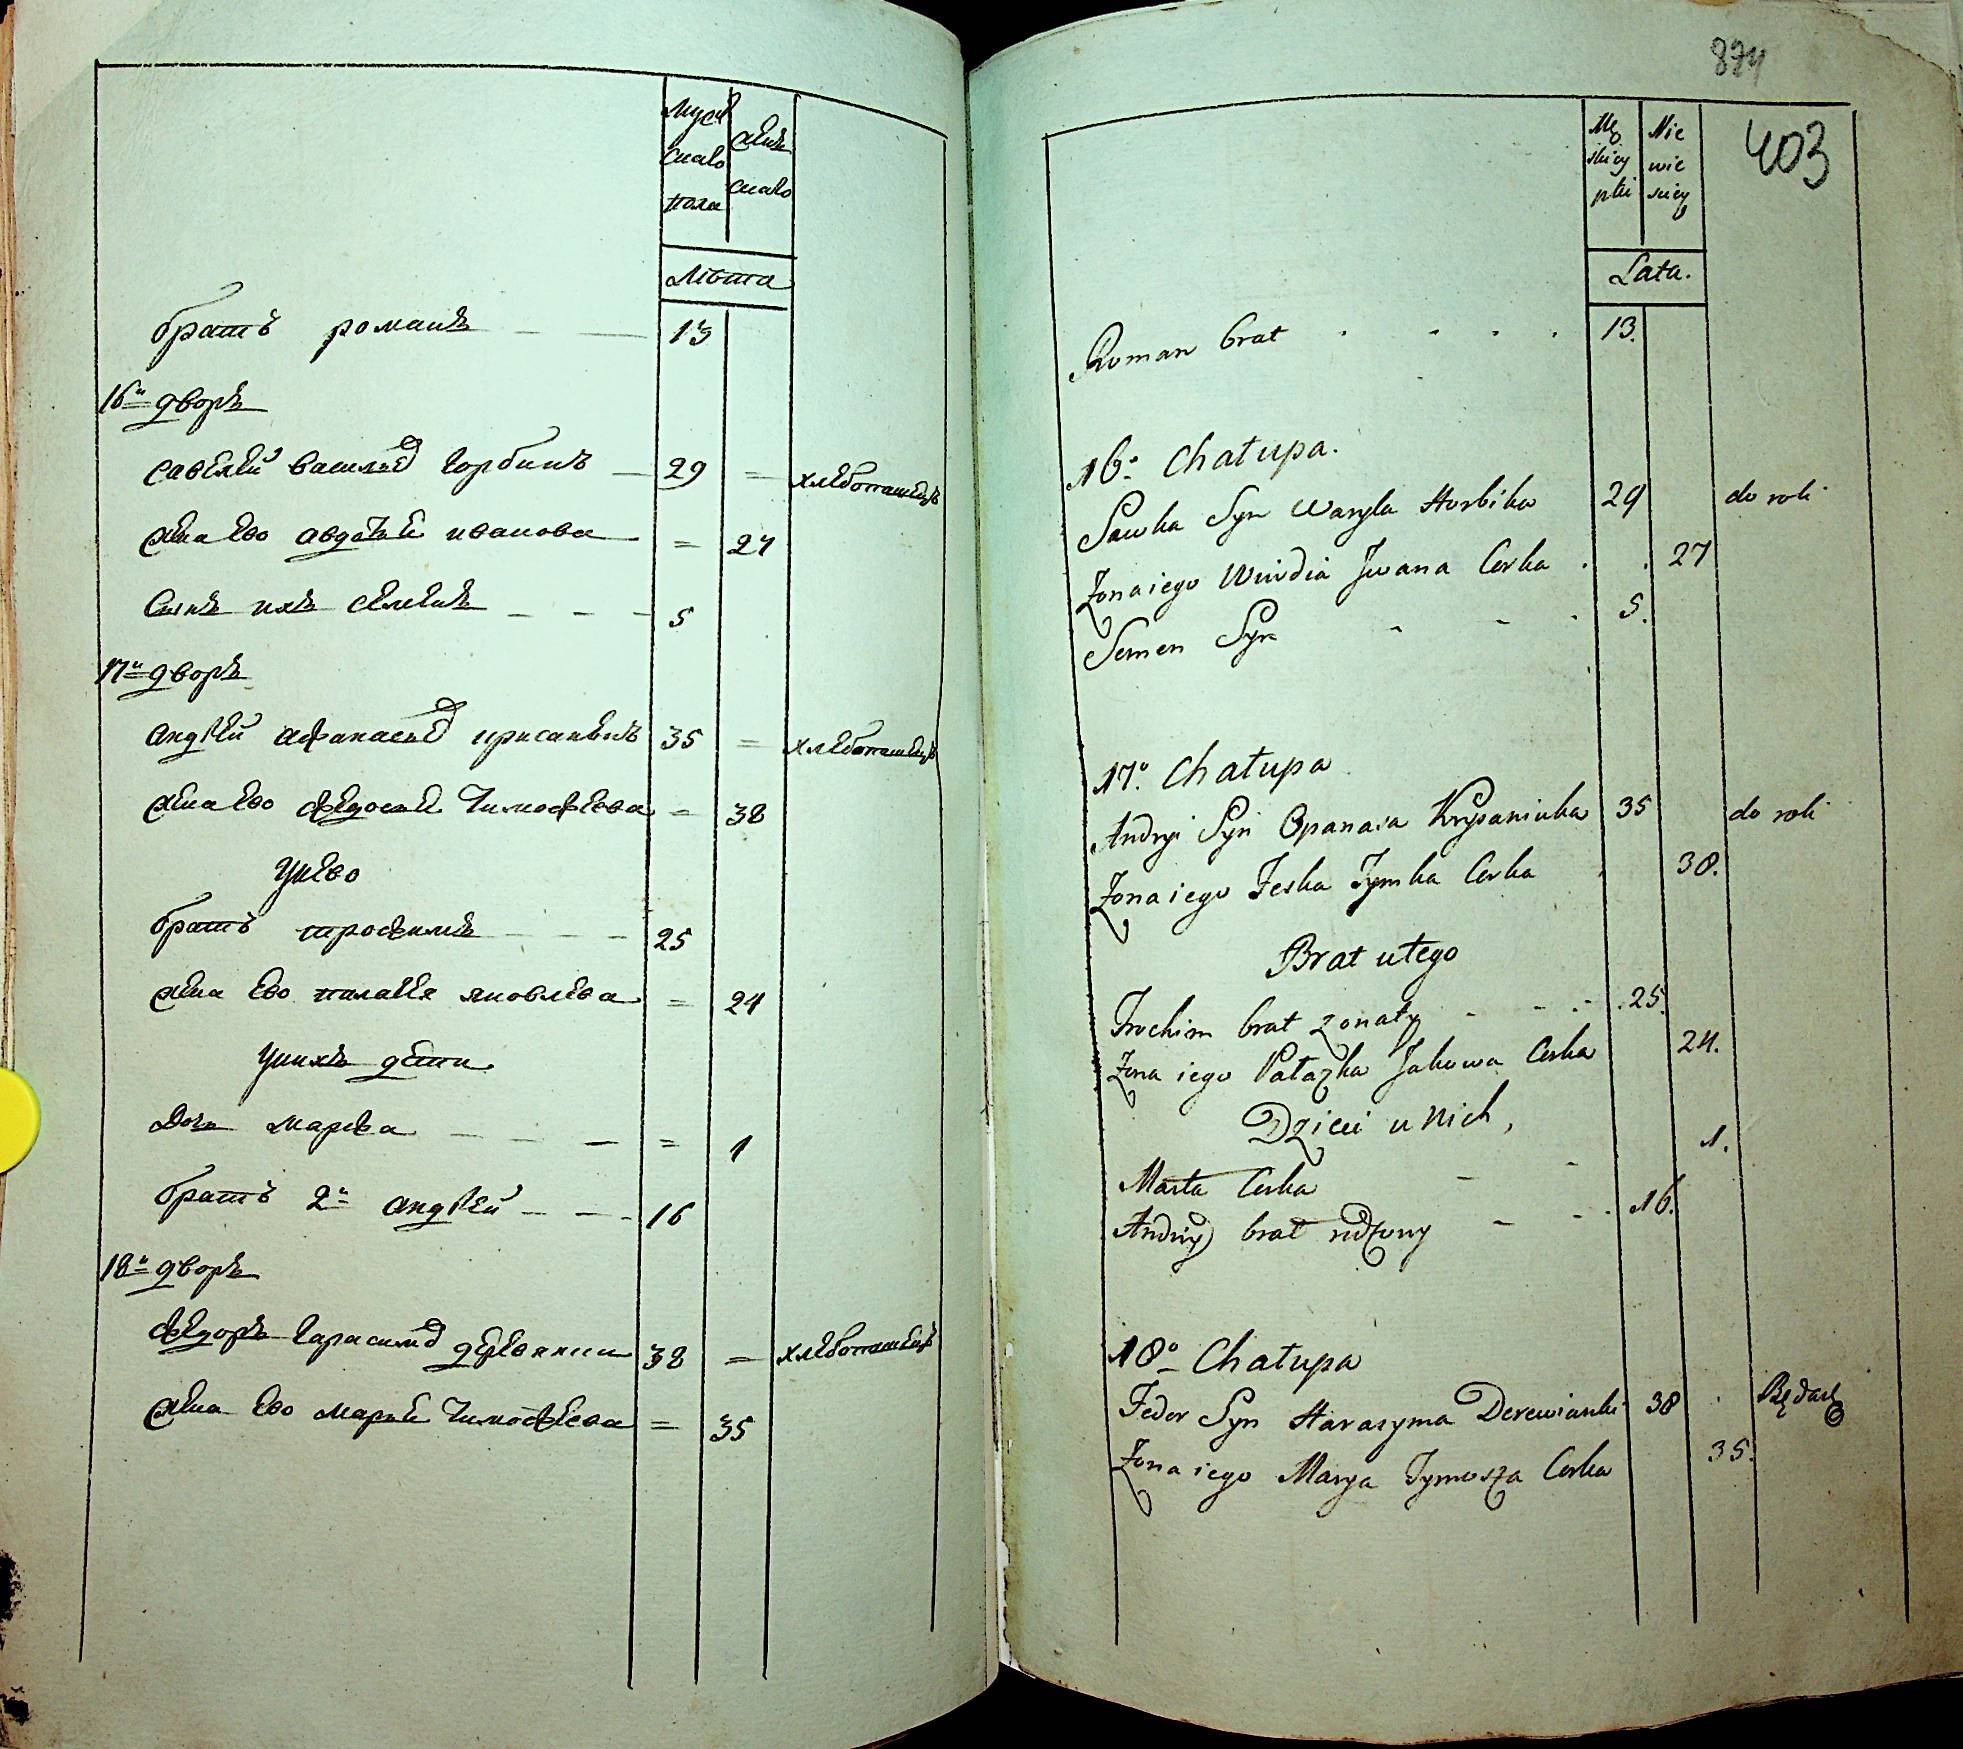 Муск
жен
скаго
скаго
пола
Лѣта
братъ романъ 13
16й дворъ
савелей василиев горбикъ 29 = хлебопашецъ
жена ево авдотия иванова = 27
Сынъ ихъ семенъ 5
17й дворъ
андрей афанасиев крисанюкъ 35 = хлебопашецъ
жена ево федосия тимофеева = 38
у нево
братъ трофимъ 25
жена ево палагея яковлева = 24
у нихъ дети
дочь марфа = 1
братъ 2й андрей 16
18й дворъ
федоръ гарасимов деревянки 38 = хлебопашецъ
жена ево мария тимофеева = 35
874
403
Mę
skiey
płci
Nie
wie
sciey
Lata.
Roman brat 13.
16o Chałupa.
Sawka Syn Wasyla Horbika 29 do roli
Zona iego Iwana Corka 27
Semen Syn 5.
17o Chałupa
Andryi Syn Opanasa Krysaniuka 35 do roli
Zona iego Feska Tymka Corka 38.
Brat u tego
Trochim brat zonaty 25.
Zona iego Pałazka Jakowa Corka 24.
Dzieci u Nich,
Marta Corka 1.
Andryi brat rodzony 16.
18o Chałupa
Fedor Syn Harasyma Derewianki 38
Zona iego Marya Tymosza Corka 35.